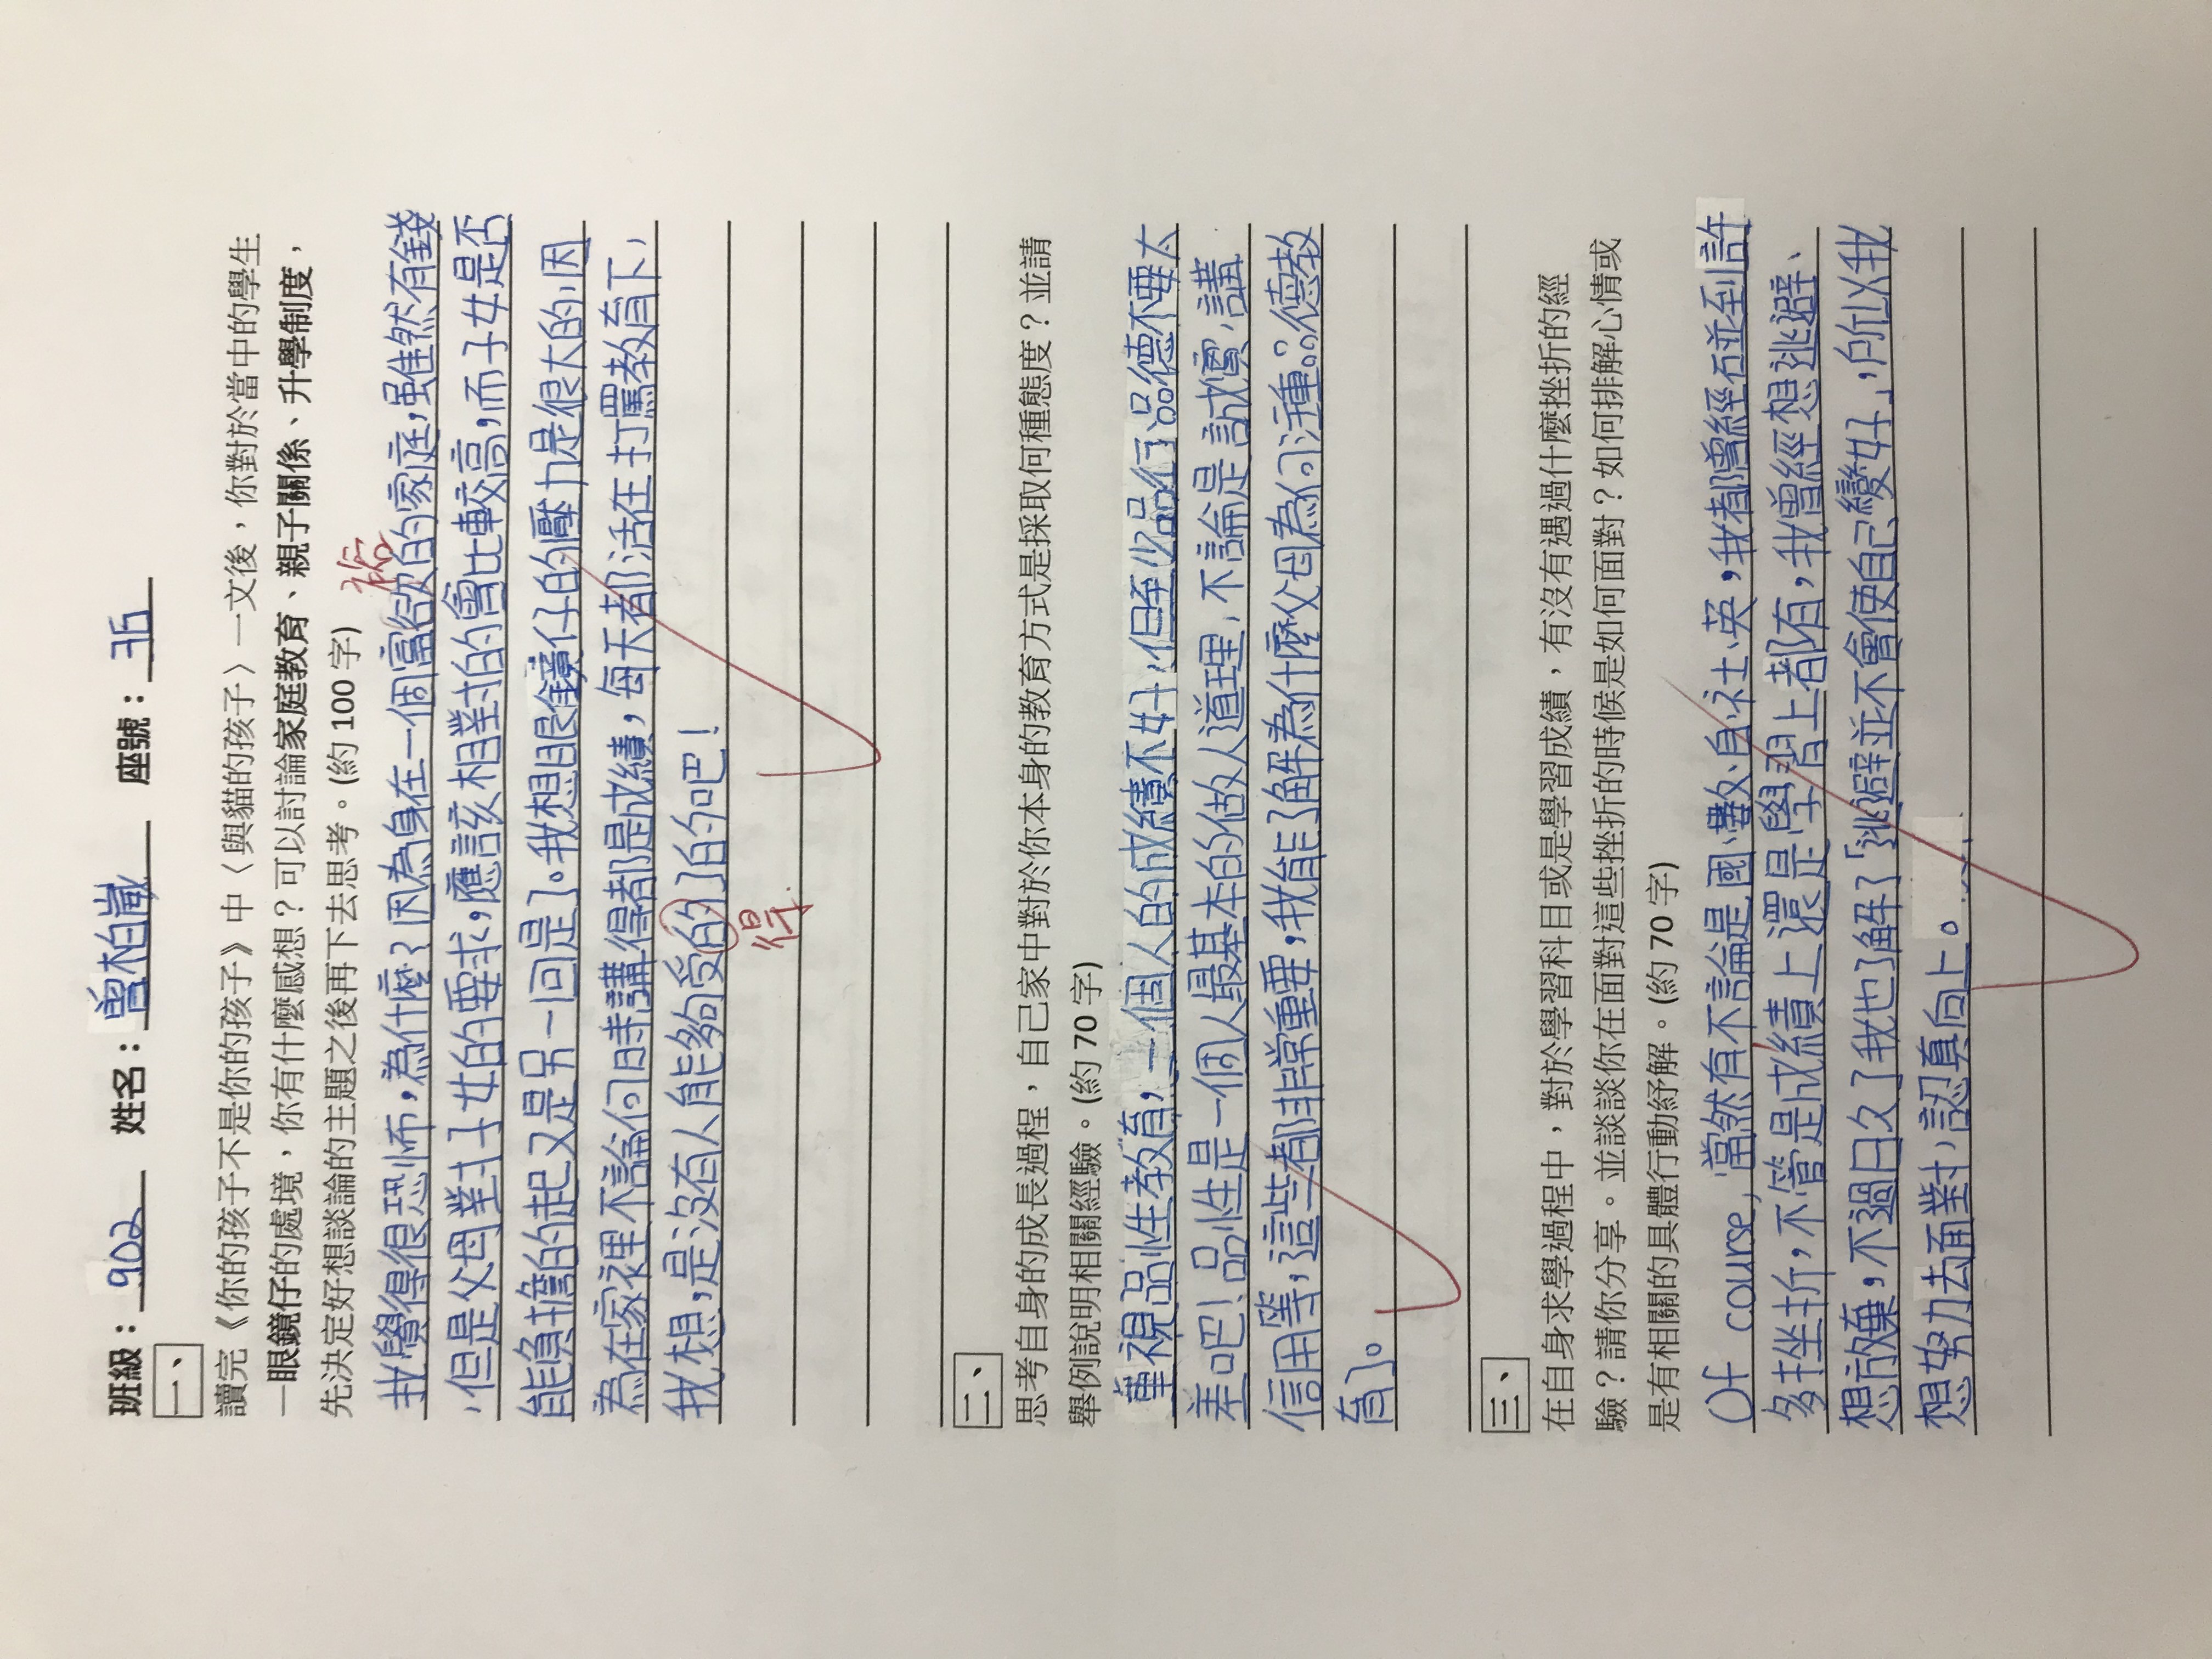 班級：902 姓名：曾柏崴 座號：35
一、
讀完《你的孩子不是你的孩子》中〈與貓的孩子〉一文後，你對於當中的學生
—眼鏡仔的處境，你有什麼感想？可以討論家庭教育、親子關係、升學制度，
先決定好想談論的主題之後再下去思考。(約 100 字)
裕
我覺得很恐怖，為什麼？因為身在一個富欲的家庭，雖然有錢
，但是父母對子女的要求，應該相對的會比較高，而子女是否
能負擔的起又是另一回是了。我想眼鏡仔的壓力是很大的，因
為在家裡不論何時講得都是成績，每天都活在打罵教育下，
我想，是沒有人能夠受的了的吧！
得
二、
思考自身的成長過程，自己家中對於你本身的教育方式是採取何種態度？並請
舉例說明相關經驗。(約 70 字)
重視品性教育，一個人的成績不好，但至少品行品德不要太
差吧！品性是一個人最基本的做人道理，不論是誠實，講
信用等，這些都非常重要，我能了解為什麼父母為何注重品德教
育了。
三、
在自身求學過程中，對於學習科目或是學習成績，有沒有遇過什麼挫折的經
驗？請你分享。並談談你在面對這些挫折的時候是如何面對？如何排解心情或
是有相關的具體行動紓解。(約 70 字)
Of course, 當然有不論是國、數、自、社、英，我都曾經碰到許
多挫折，不管是成績上還是學習上都有，我曾經想逃避、
想放棄，不過日久了我也了解了「逃避並不會使自己變好」，所以我
想努力去面對，認真向上。